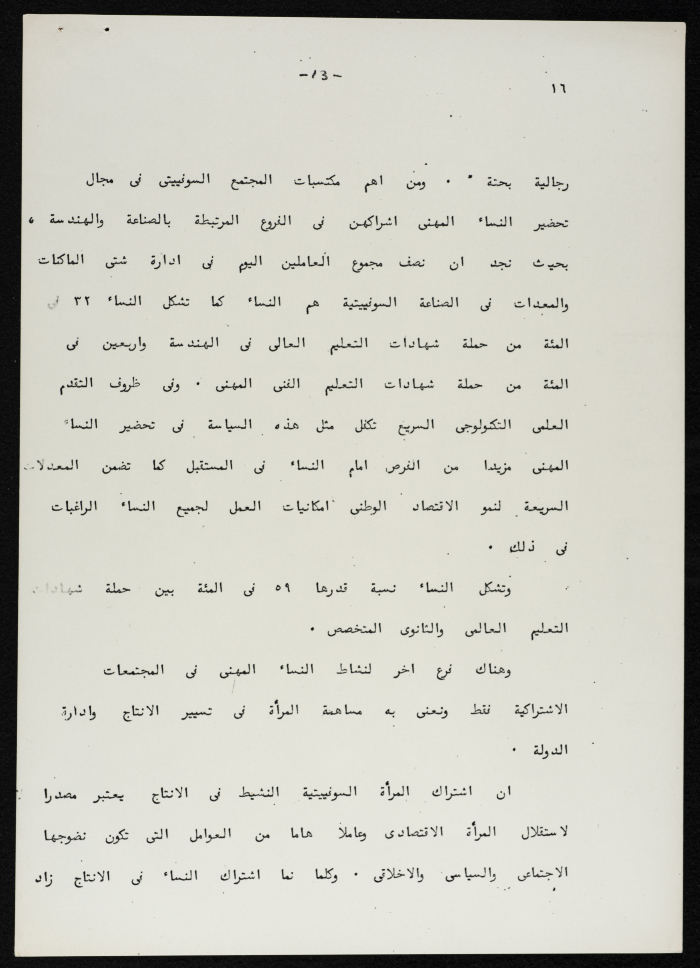 -13-
١٦
رجالية بحتة " . ومن اهم مكتسبات المجتمع السوفييتى فى مجال
تحضير النساء المهنى اشراكهن فى الفروع المرتبطة بالصناعة والهندسة ،
بحيث نجد ان نصف مجموع العاملين اليوم فى ادارة شتى الماكنات
والمعدات فى الصناعة السوفييتية هم النساء كما تشكل النساء ٣٢ فى
المئة من حملة شهادات التعليم العالى فى الهندسة واربعين فى
المئة من حملة شهادات التعليم الفنى المهنى . وفى ظروف التقدم
العلمى التكنولوجى السريع تكفل مثل هذه السياسة فى تحضير النساء
المهنى مزيدا من الفرص امام النساء فى المستقبل كما تضمن المعدلات
السريعة لنمو الاقتصاد الوطنى امكانيات العمل لجميع النساء الراغبات
فى ذلك .
وتشكل النساء نسبة قدرها ٥٩ فى المئة بين حملة شهادات
التعليم العالى والثانوى المتخصص .
وهناك فرع اخر لنشاط النساء المهنى فى المجتمعات
الاشتراكية فقط ونعنى به مساهمة المرأة فى تسيير الانتاج وادارة
الدولة .
ان اشتراك المرأة السوفييتية النشيط فى الانتاج يعتبر مصدرا
لاستقلال المرأة الاقتصادى وعاملا هاما من العوامل التى تكون نضوجها
الاجتماعى والسياسى والاخلاقى . وكلما نما اشتراك النساء فى الانتاج زاد